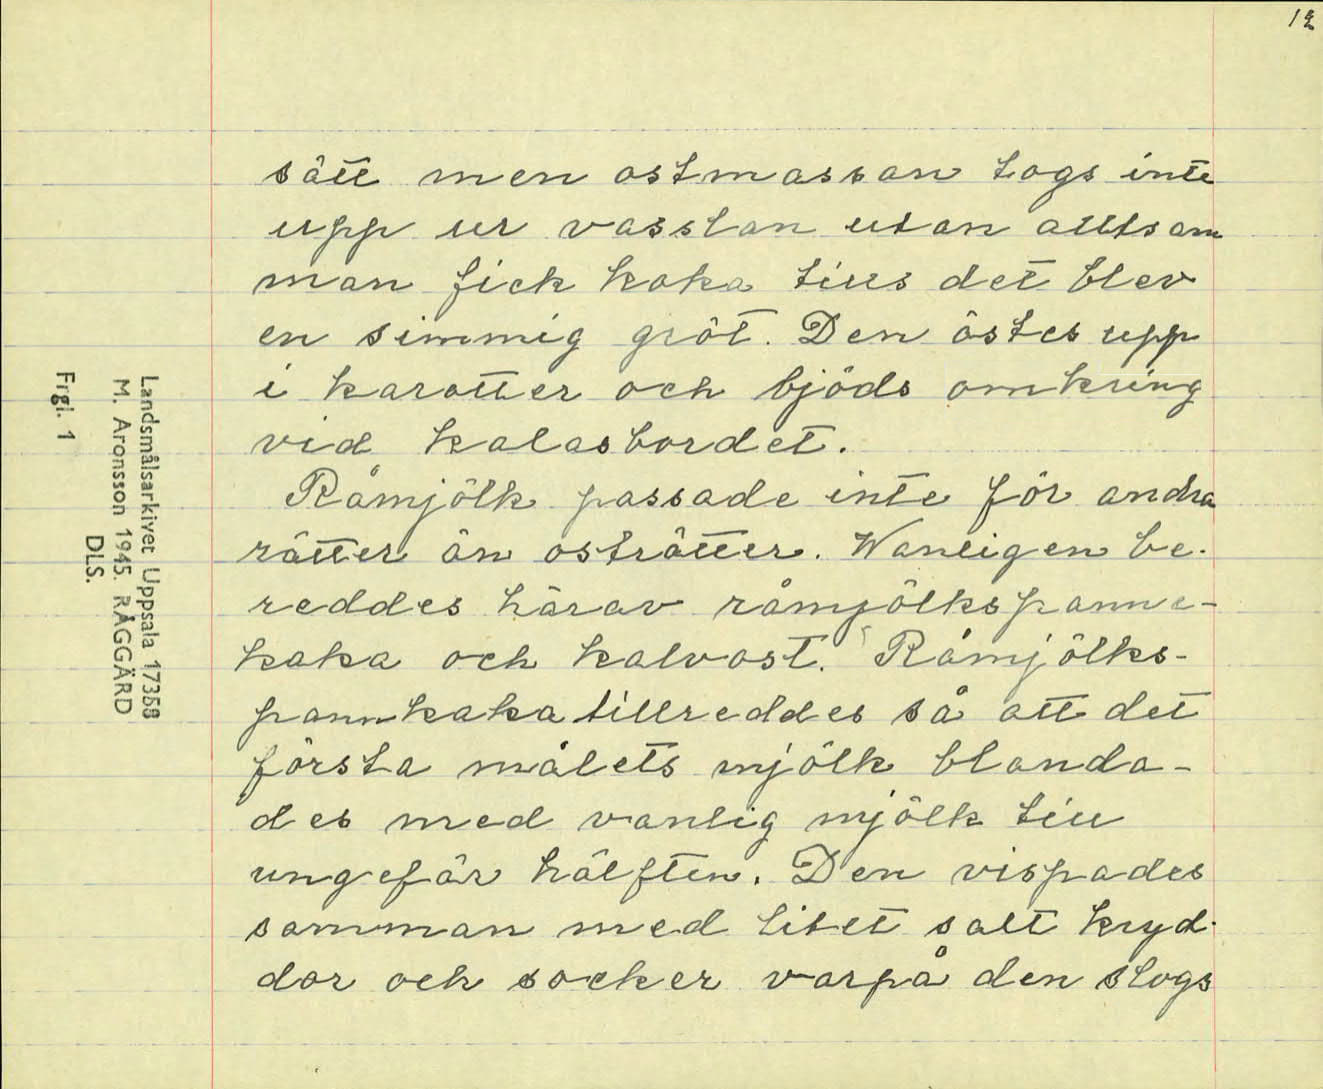 12
sätt men ostmassan togs inte
upp ur vasslan utan alltsam
man fick koka tills det blev
en simmig gröt. Den östes upp
i karotter och bjöds omkring
vid kalasbordet.
Råmjölk passade inte för andra
rätter än osträtter. Wanligen be-
reddes härav råmjölkspanne-
kaka och kalvost. Råmjölks-
pannkaka tillreddes så att det
första målets mjölk blanda-
des med vanlig mjölk till
ungefär hälften. Den vispades
samman med litet salt kryd-
dor och socker varpå den slogs
Landsmålsarkivet Uppsala 17358
M. Aronsson 1945. RÅGGÄRD
DLS.
Frgl. 1